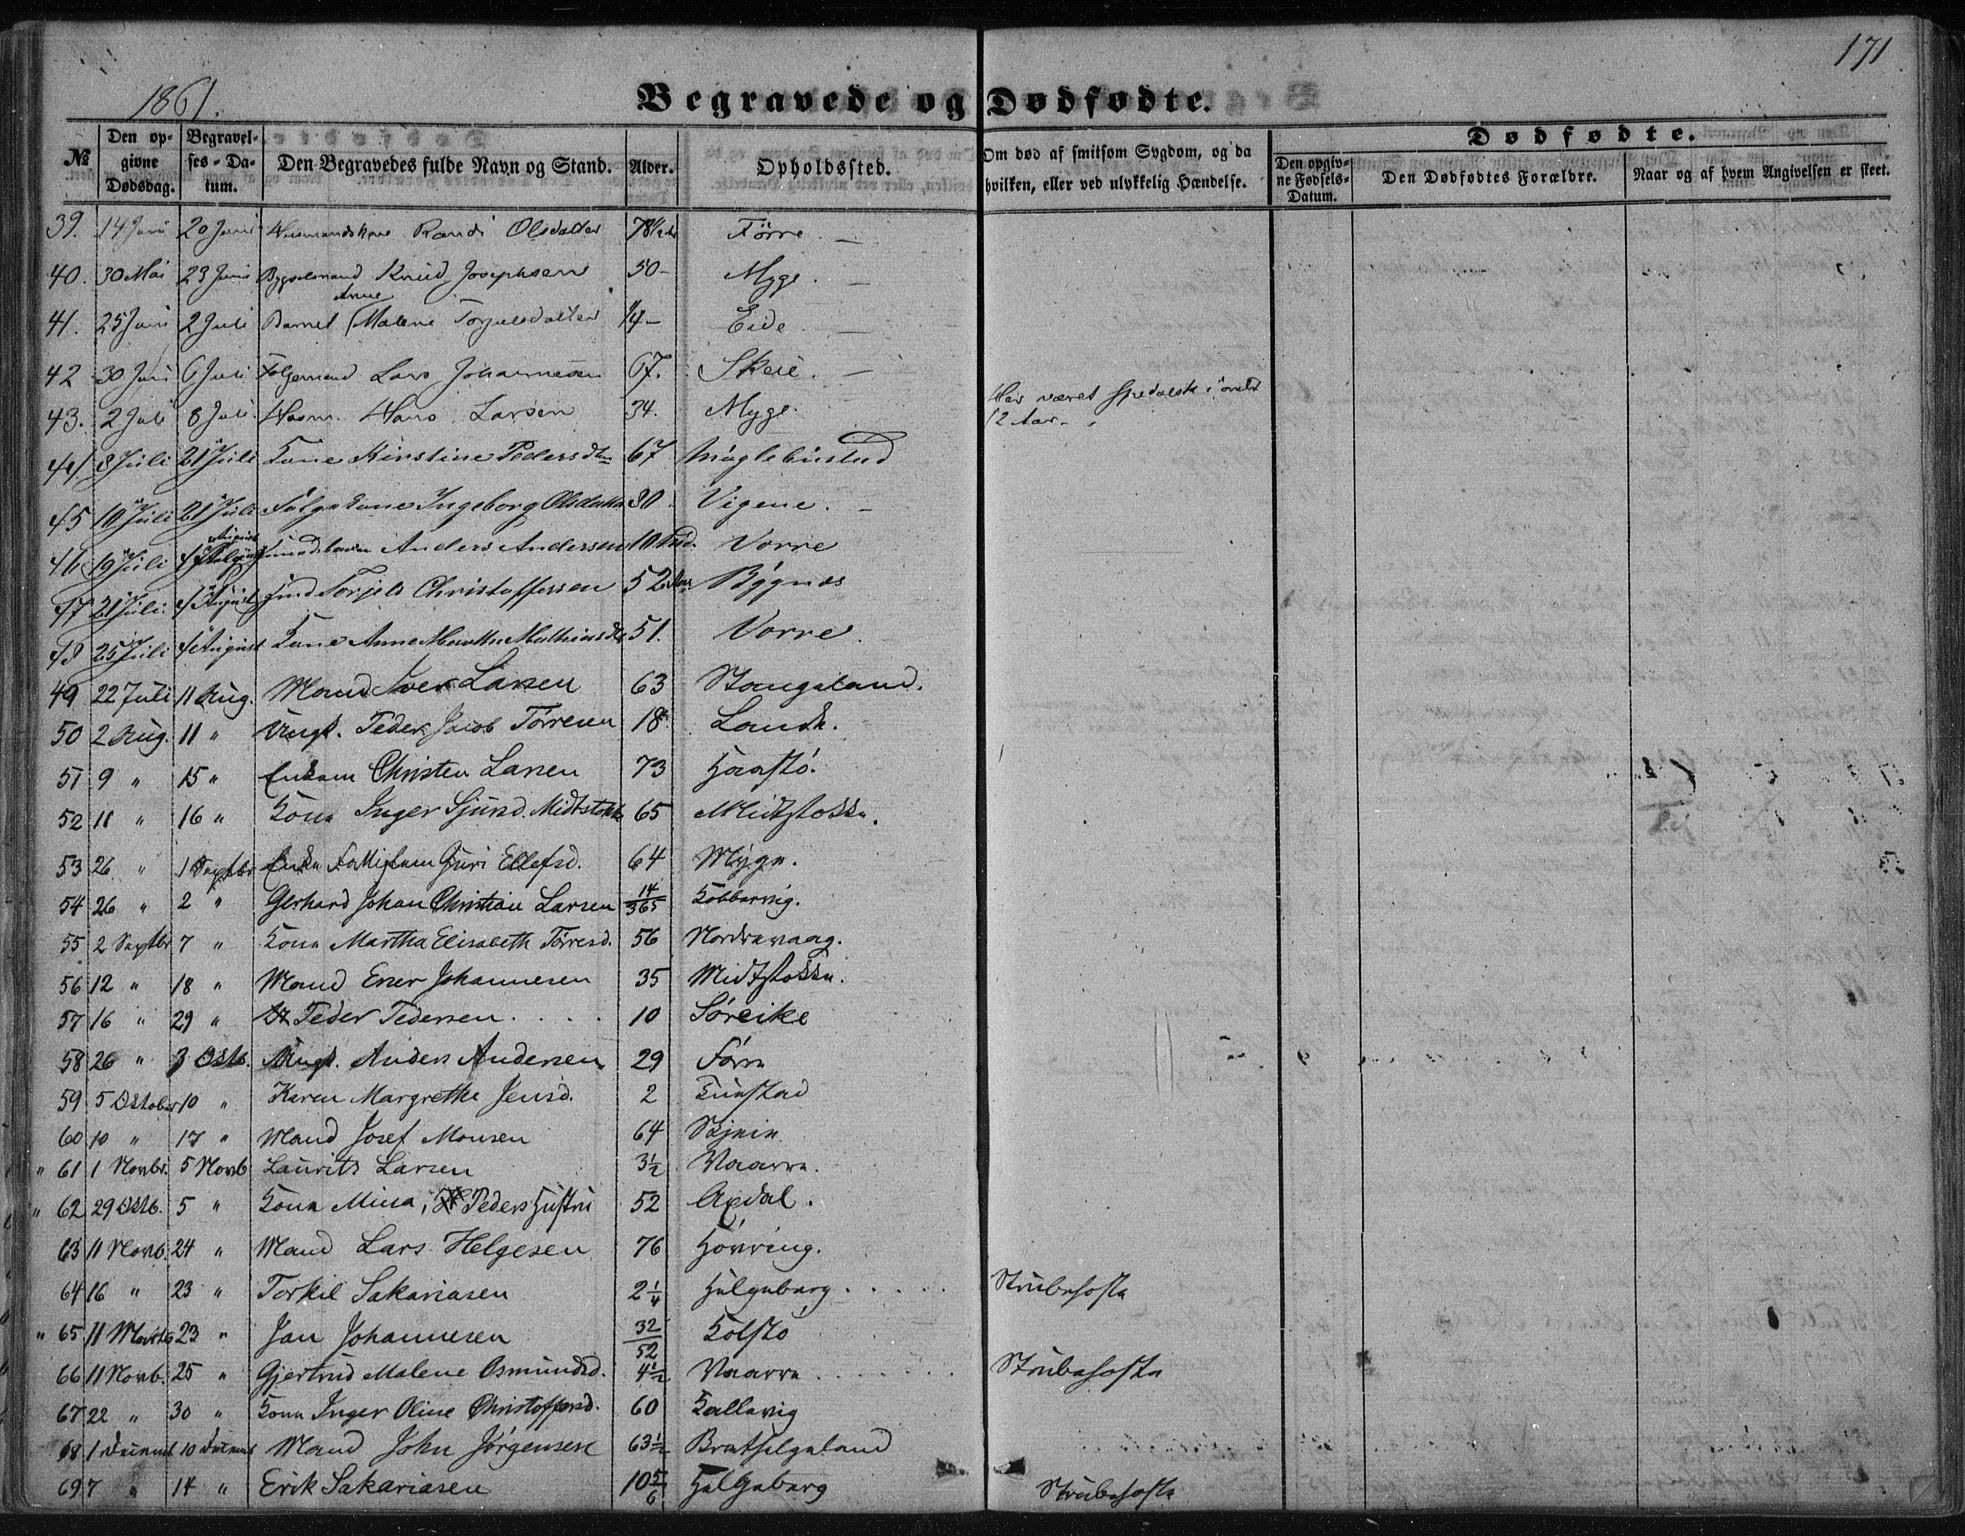 171
1861.
Begravede og Dødfødte.
№
Den op-
givne
Dødsdag.
Begravel-
ses-Da-
tum.
Den Begravedes fulde Navn og Stand.
Alder.
Opholdssted.
Om død af smitsom Sygdom, og da
hvilken, eller ved ulykkelig Hændelse.
Dødfødte.
Den opgiv-
ne Fødsels-
Datum.
Den Dødfødtes Forældre.
Naar og af hvem Angivelsen er skeet.
39. 14 Juni 20 Juni Huusmandskone Randi Olsdatter 78½ Førre. —
40. 30 Mai 23 Juni Bygselmand Knud Josephsen 50 - Myge. —
Anne
41. 25 Juni 2 Juli Barnet Malene Torjulsdatter ¼ - Eide —
42 30 Juni 6 Juli Følgemand Lars Johannesen 67. Skeie. —
43. 2 Juli 8 Juli Husm. Hans Larsen 34. Myge. Har været spedalsk i omtr
12 Aar.
44 8 Juli 21 Juli Kone Kirstine Pedersdtr 67
45 10 Juli 21 Juli Følgekone Ingeborg Olsdatter 80. Vigene. —
August
46 19 Juli 4 Anders Andersen 10 Vorre
47 21 Juli. 4 August Torjels Christoffersen 52 Bygnes
48 25 Juli 4 August Kone Anne Martha Mathiasdtr 51. Vorre.
49 22 Juli 11 Aug. Mand Iver Larsen 63 Stangeland.
50 2 Aug. 11 " Ungk. Peder Jacob Tørresen 18 Lande.
51 9 " 15 " Enkem Christen Larsen 73 Haastø.
52 11 " 16 " Kone Inger Sjurd. Midtstokke 65 Midtstokke.
53 26 " 1 Septbr Enke Guri Ellefsd. 64 Myge.
54 26 " 2 " Gerhard Johan Christian Larsen 14/365 Kobbervig.
55 2 Septbr 7 " Kone Martha Elisabeth Tørresd. 56 Nordrevaag.
56 12 " 18 " Mand Ener Johannesen 35 Midtstokke.
57 16 " 29 " Peder Pedersen . . . . 10 Søreike
58 26 " 3 Oktb. Ungk. Anders Andersen 29 Førre
59 5 Oktober 10 " Karen Margrethe Jensd. 2 Tunstad
60 10 " 17 " Mand Josef Monsen 64 Skjeie
" 61 1 Novbr. 5 Novb Laurits Larsen 3½ Vaarre.
" 62 29 Oktb. 5 " Kone Mina, Peders Hustru 52 Axdal.
63 11 Novb. 24 " Mand Lars Helgesen 76 Høvring.
64 16 " 23 " Torkil Sakariasen 2¼ Helgeberg . . . . . Strubehoste
" 65 11 Novb 23 " Jan Johannesen 32/52 Kolstø
66 11 Novb. 25 " Gjertrud Malene Osmundsd. 4½ Vaarre . . . . . . Strubehoste
67 22 " 30 " Kone Inger Oline Christoffersd. 60 Kallevig
68 1 Decemb 10 Decemb Mand John Jørgensen 63½ Brathelgeland
69 7 " 14 " Erik Sakariasen 10 5/6 Helgeberg Strubehoste